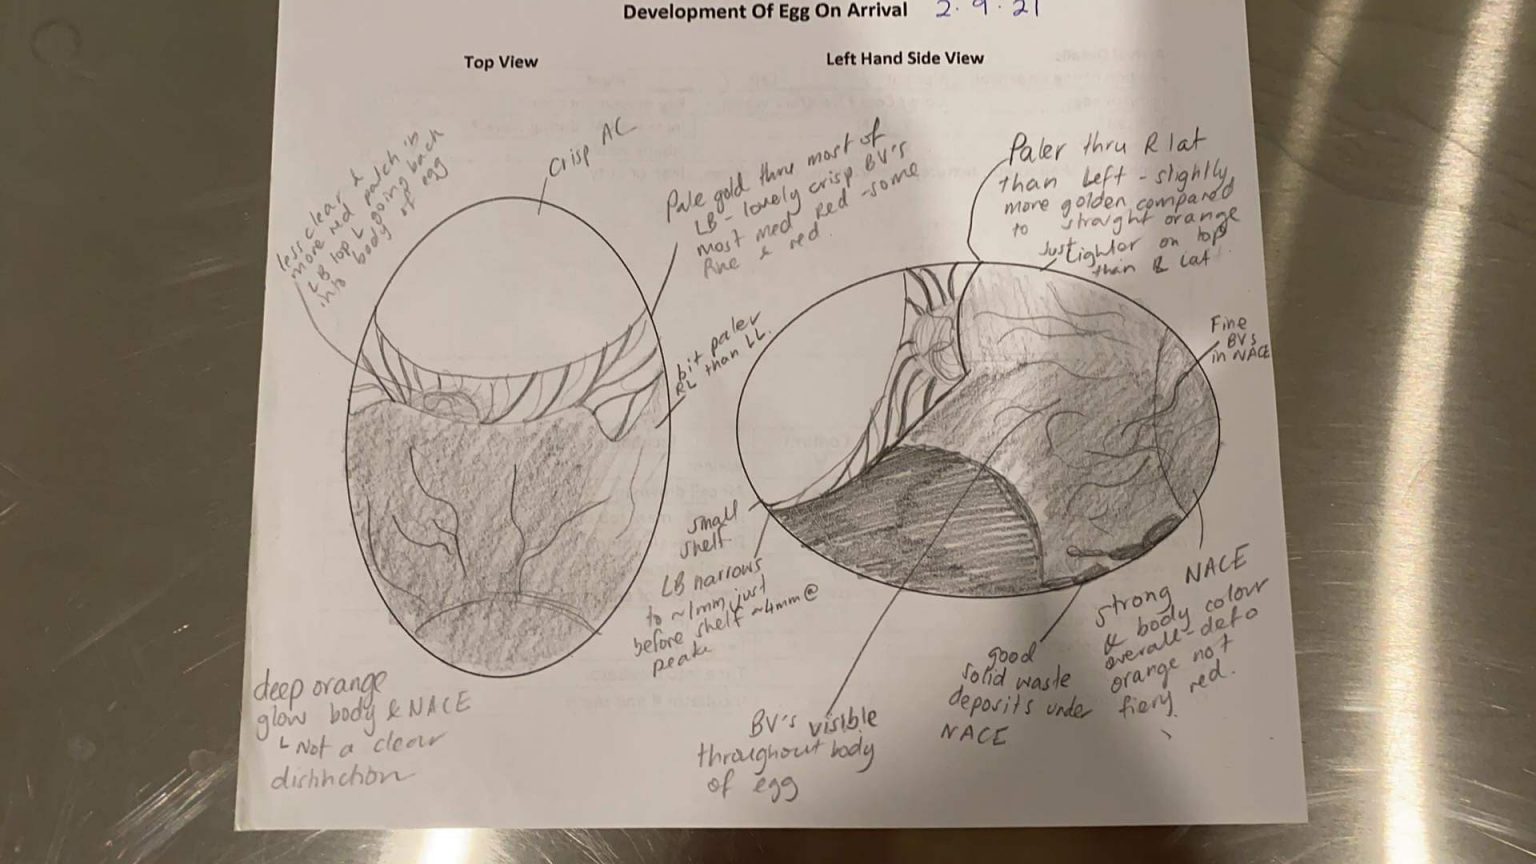 Development Of Egg On Arrival 2.9.21
Top View
Left Hand Side View
less clear &
more red patch in
LB top L going back
into body of egg
crisp AC
Pale gold thru most of
LB - lovely crisp BV's
most med red - some
fine & red.
bit paler
RL than LL.
Paler thru R lat
than Left - slightly
more golden compared
to straight orange
Just lighter on top
than R lat
Fine
BVs
in NACE
small
shelf
LB narrows
to ~1mm just
before shelf ~4mm @
peak
deep orange
glow body & NACE
Not a clear
distinction
BV's visible
throughout body
of egg
good
solid waste
deposits under
NACE
strong NACE
& body colour
overall - defo
orange not
fiery red.